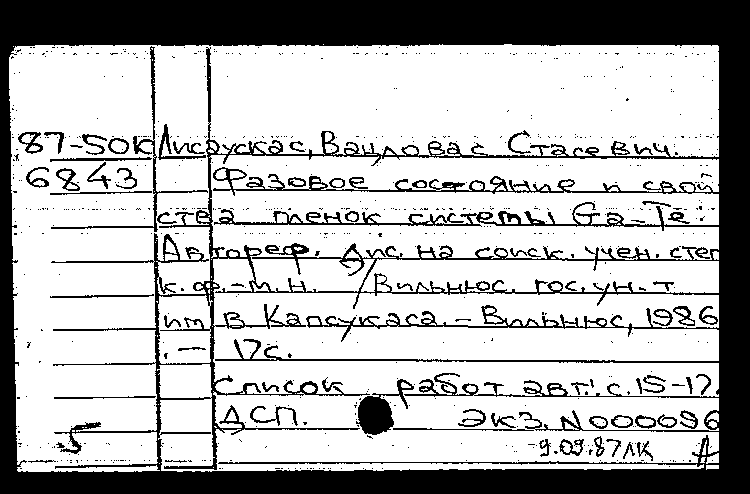 87-50К Лисаускас, Вацловас Стасевич.
6843 Фазовое состояние и свой
ства пленок системы Ga-Te:
Автореф. дис. на соиск. учен. степ
к.ф.-м.н. /Вильнюс. гос. ун-т
им В Капсукаса. - Вильнюс, 1986
. - 17с.
Список работ авт.: с.15-17.
ДСП. Экз. N000096
5 9.09.87ЛК А